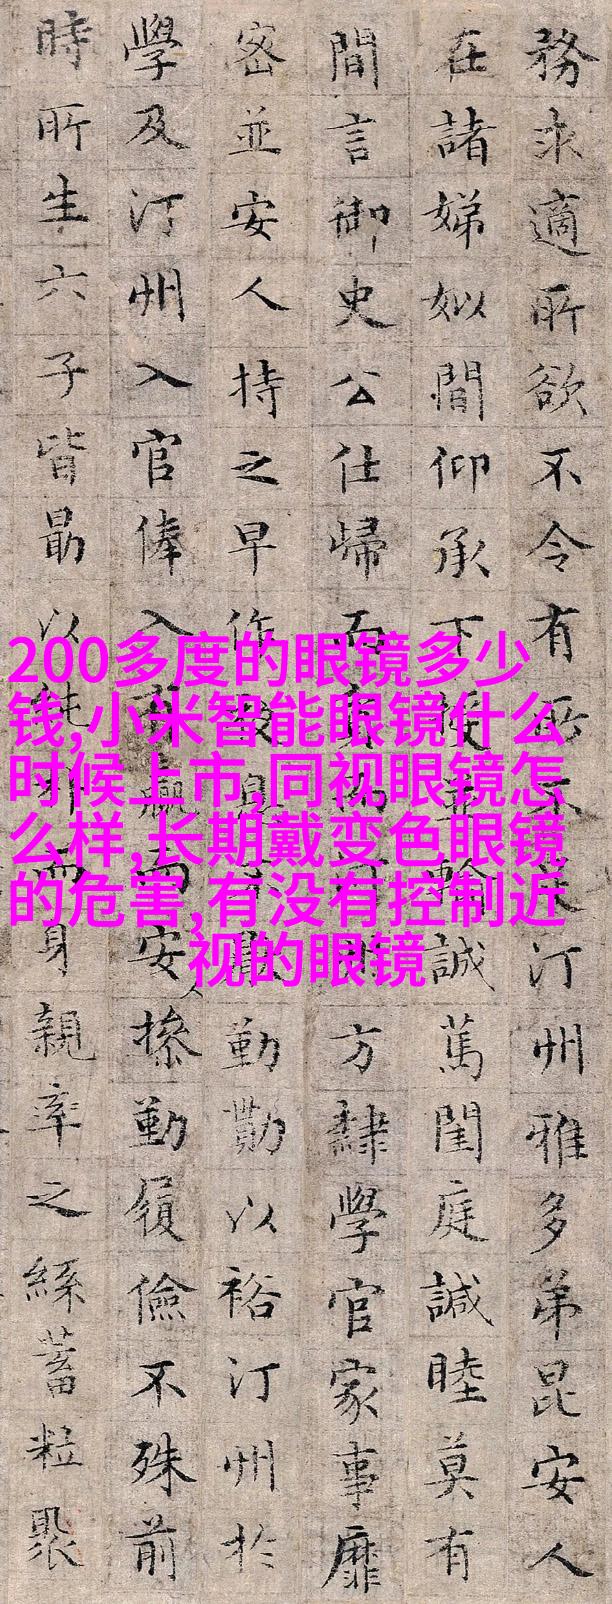 務求適所欲不令有所不汀州雅多弟昆安人
在諸娣姒間仰承下輸誠萬閨庭諴睦莫有
間言御史公仕歸而方隸學官家事靡
密並安人持之早作息勤勩以裕汀州於
學及汀州入官俸入而安人操勤履儉不殊前
時所生六子皆勗以純而身親率之絲蓄粒聚
200多度的眼镜多少
钱,小米智能眼镜什么
时候上市,同视眼镜怎
么样,长期戴变色眼镜
的危害,有没有控制近
视的眼镜